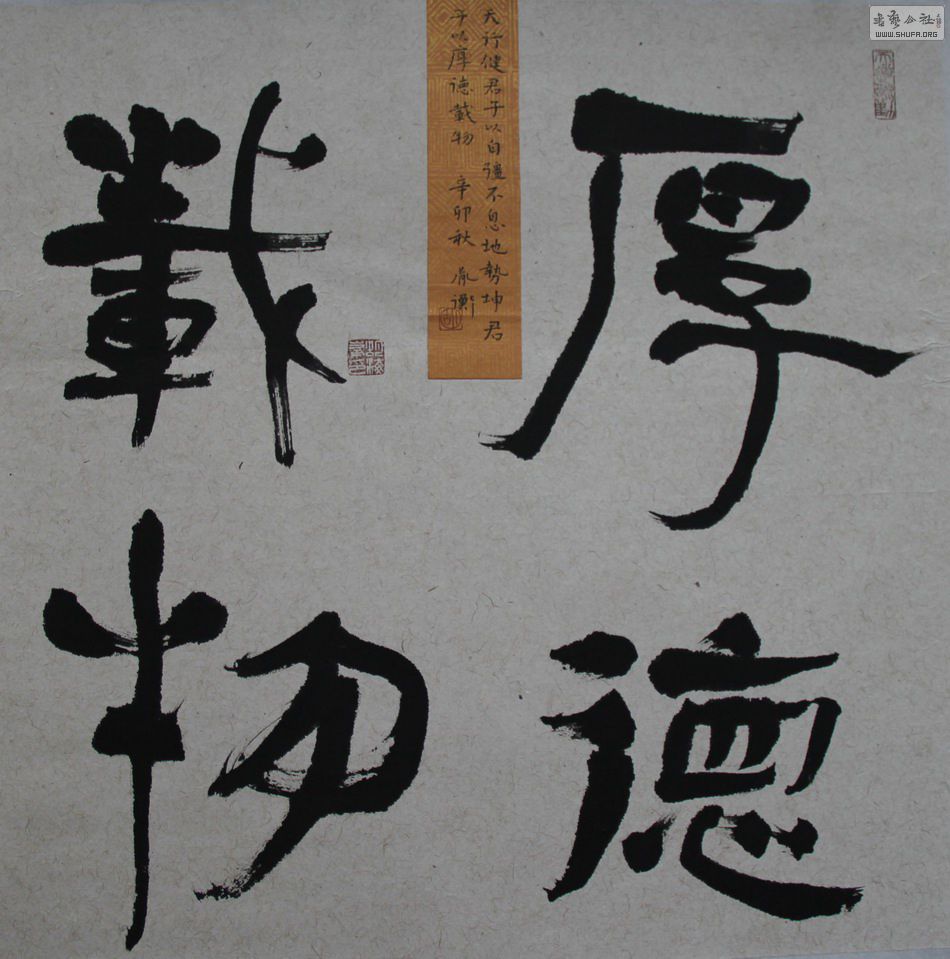 厚德
載物
天行健君子以自彊不息地勢坤君
子以厚德載物 辛卯秋
書藝公社
WWW.SHUFA.ORG